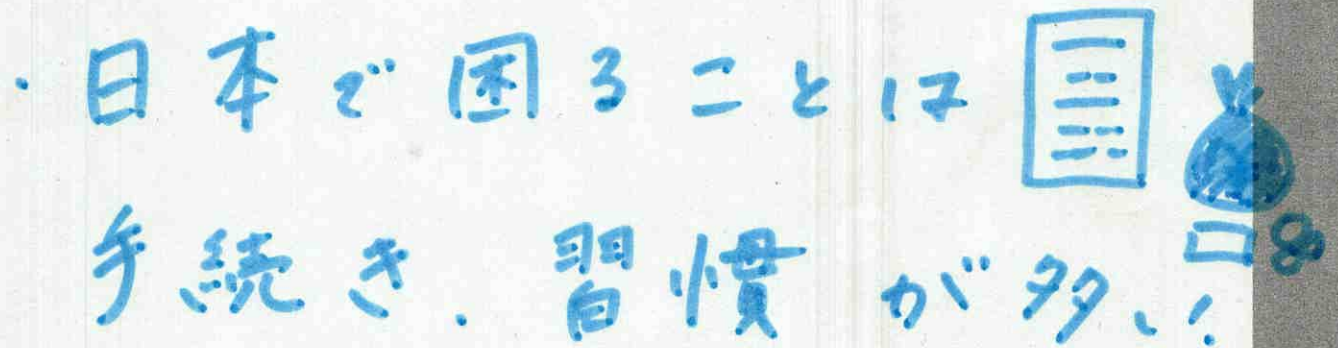 ・日本で困ることは
手続き、習慣が多い!